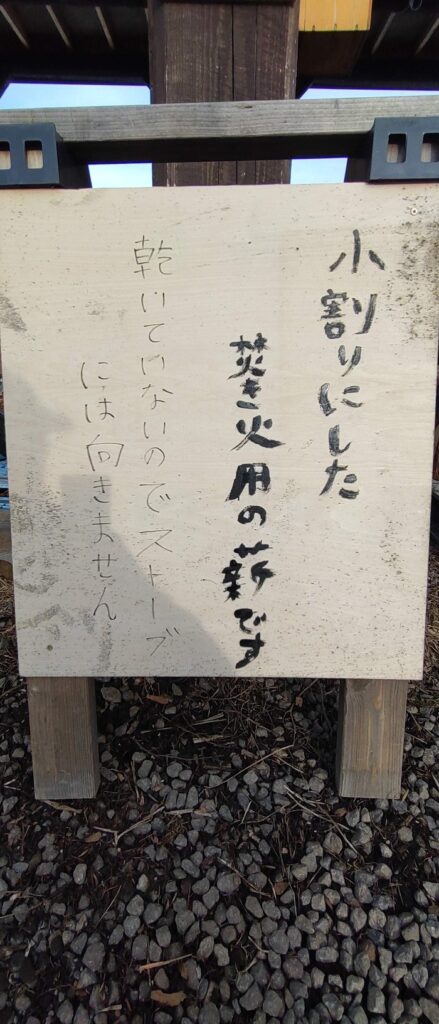 小割りにした
焚き火用の薪です
乾いていないのでストーブ
には向きません